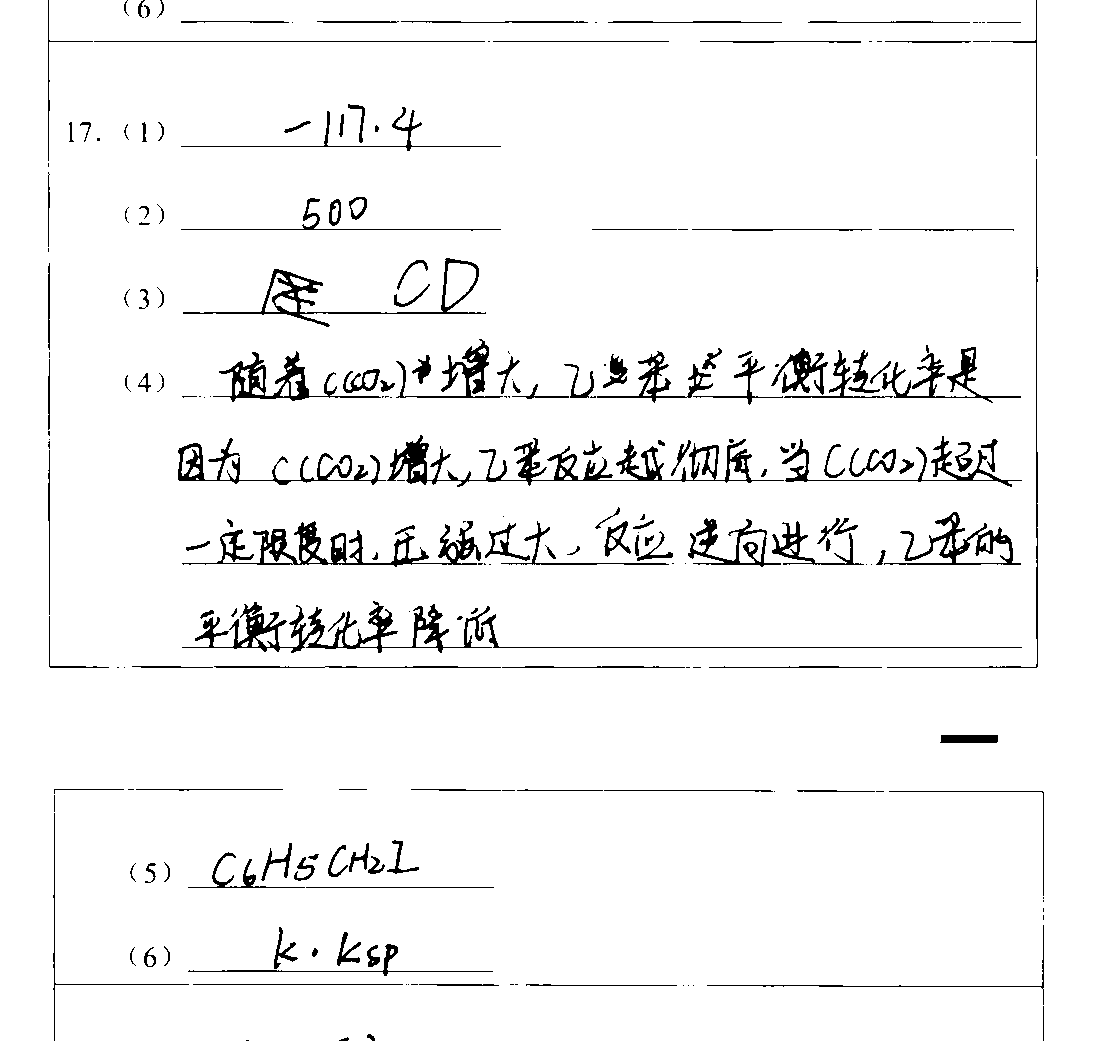 (6)
17. (1) -117.4
(2) 500
(3) CD
(4) 随着c(CO2)增大,乙苯平衡转化率是
因为 c(CO2)增大,乙苯反应越彻底,当c(CO2)超过
一定限度时,压强过大,反应逆向进行,乙苯的
平衡转化率降低
(5) C6H5CH2I
(6) K·Ksp